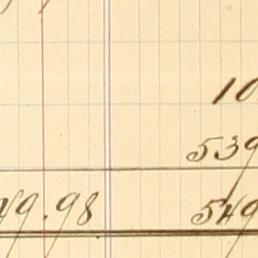 10
539
49.98 549